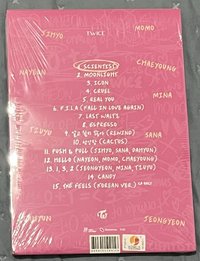 TWICE
JIHYO
MOMO
① SCIENTIST
2. MOONLIGHT
NAYEON
CHAEYOUNG
3. ICON
4. CRUEL
5. REAL YOU
MINA
6. F.I.L.A (FALL IN LOVE AGAIN)
7. LAST WALTZ
8. ESPRESSO
TZUYU
9. (REWIND)
SANA
10. 선인장 (CACTUS)
11. PUSH & PULL (JIHYO, SANA, DAHYUN)
12. HELLO (NAYEON, MOMO, CHAEYOUNG)
13. 1, 3, 2 (JEONGYEON, MINA, TZUYU)
14. CANDY
15. THE FEELS (KOREAN VER.) CD ONLY
JEONGYEON